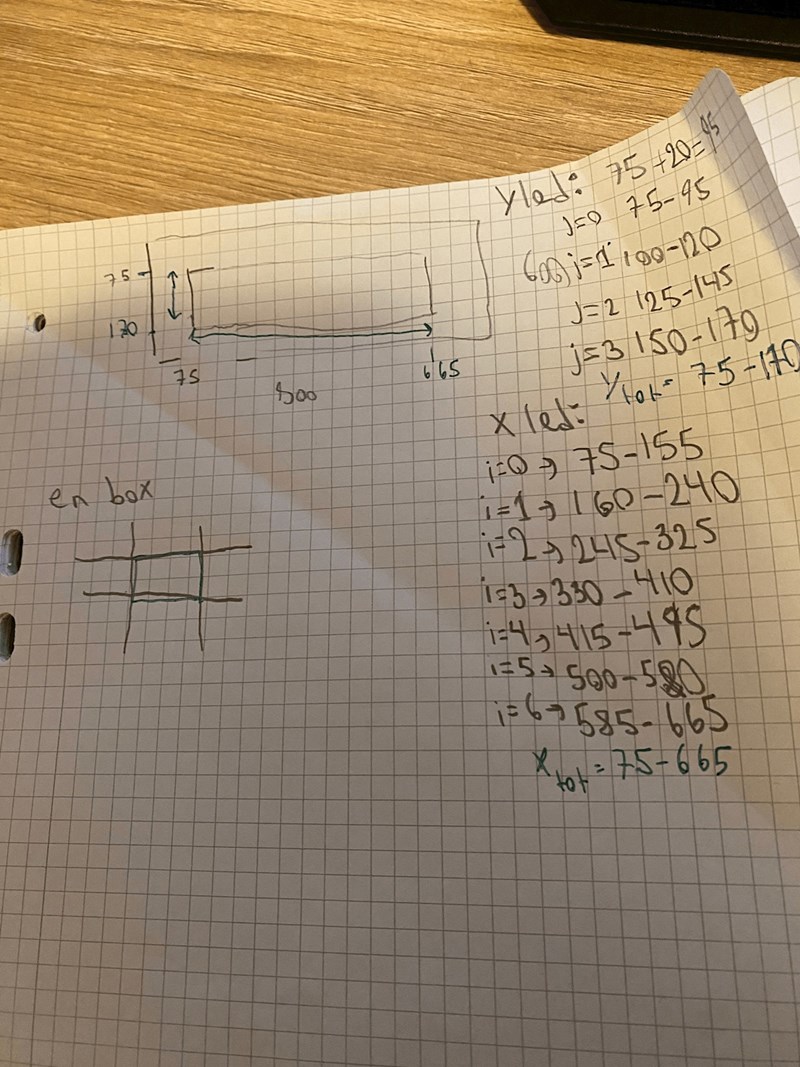 yled: 75+20=95
j=0 75-95
600) j=1 100-120
j=2 125-145
j=3 150-170
ytot= 75-170
75
170
75
800
665
x led:
i=0 → 75-155
i=1 → 160-240
i=2 → 245-325
i=3 → 330-410
i=4 → 415-495
i=5 → 500-580
i=6 → 585-665
xtot = 75-665
en box